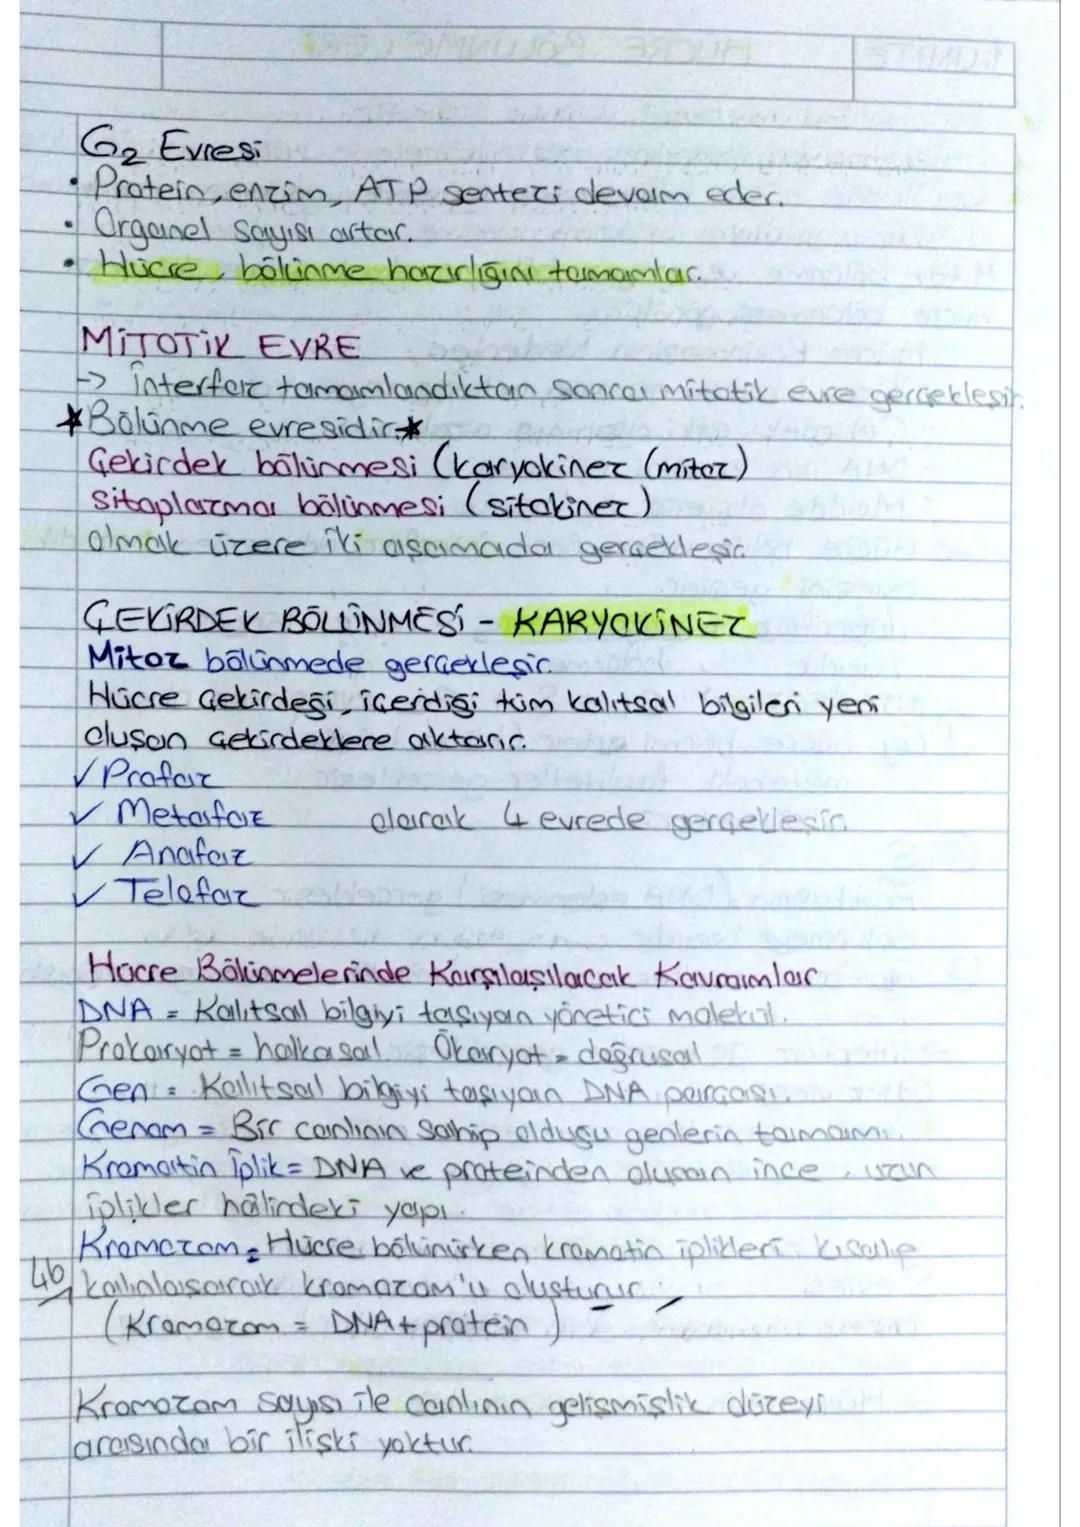 G2 Evresi
• Protein, enzim, ATP sentezi devam eder.
• Organel sayısı artar.
• Hücre, bölünme hazırlığını tamamlar.
MİTOTİK EVRE
-> İnterfaz tamamlandıktan sonra mitotik evre gerçekleşir.
★Bölünme evresidir.★
Çekirdek bölünmesi (karyokinez (mitoz)
Sitoplazma bölünmesi (sitokinez)
olmak üzere iki aşamada gerçekleşir.
ÇEKİRDEK BÖLÜNMESİ - KARYOKİNEZ
Mitoz bölünmede gerçekleşir.
Hücre çekirdeği, içerdiği tüm kalıtsal bilgileri yeni
oluşan çekirdeklere aktarır.
✓ Profaz
✓ Metafaz olarak 4 evrede gerçekleşir.
✓ Anafaz
✓ Telofaz
Hücre Bölünmelerinde Karşılaşılacak Kavramlar
DNA = Kalıtsal bilgiyi taşıyan yönetici molekül.
Prokaryot = halkasal Ökaryot = doğrusal
Gen = Kalıtsal bilgiyi taşıyan DNA parçası.
Genom = Bir canlının sahip olduğu genlerin tamamı.
Kromatin İplik = DNA ve proteinden oluşan ince, uzun
iplikler hâlindeki yapı.
Kromozom = Hücre bölünürken kromatin iplikleri kısalıp
46 kalınlaşarak kromozom'u oluşturur.
(Kromozom = DNA + protein)
Kromozom sayısı ile canlının gelişmişlik düzeyi
arasında bir ilişki yoktur.